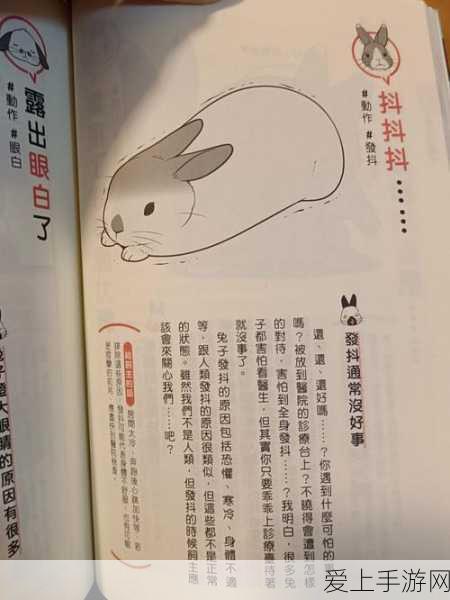 抖抖抖……
#動作 #發抖
發抖通常沒好事
還、還、還好嗎……？你遇到什麼可怕的事
嗎？被放到醫院的診療台上？不曉得會遭到怎樣
的對待，害怕到全身發抖……？我明白，很多兔
子都害怕看醫生，但其實你只要乖乖上診療臺待著
就沒事了。
兔子發抖的原因包括恐懼、寒冷、身體不適
等，跟人類發抖的原因很類似，但這些都不是正常
的狀態。雖然我們不是人類，但發抖的時候飼主應
該會來關心我們……吧？
房間太冷、奔跑後心跳加快等，若
排除這些原因，發抖可能代表身體不舒服，也有可能
露出眼白了
#動作 #眼白
大眼睛的原因有很多
爱上手游网